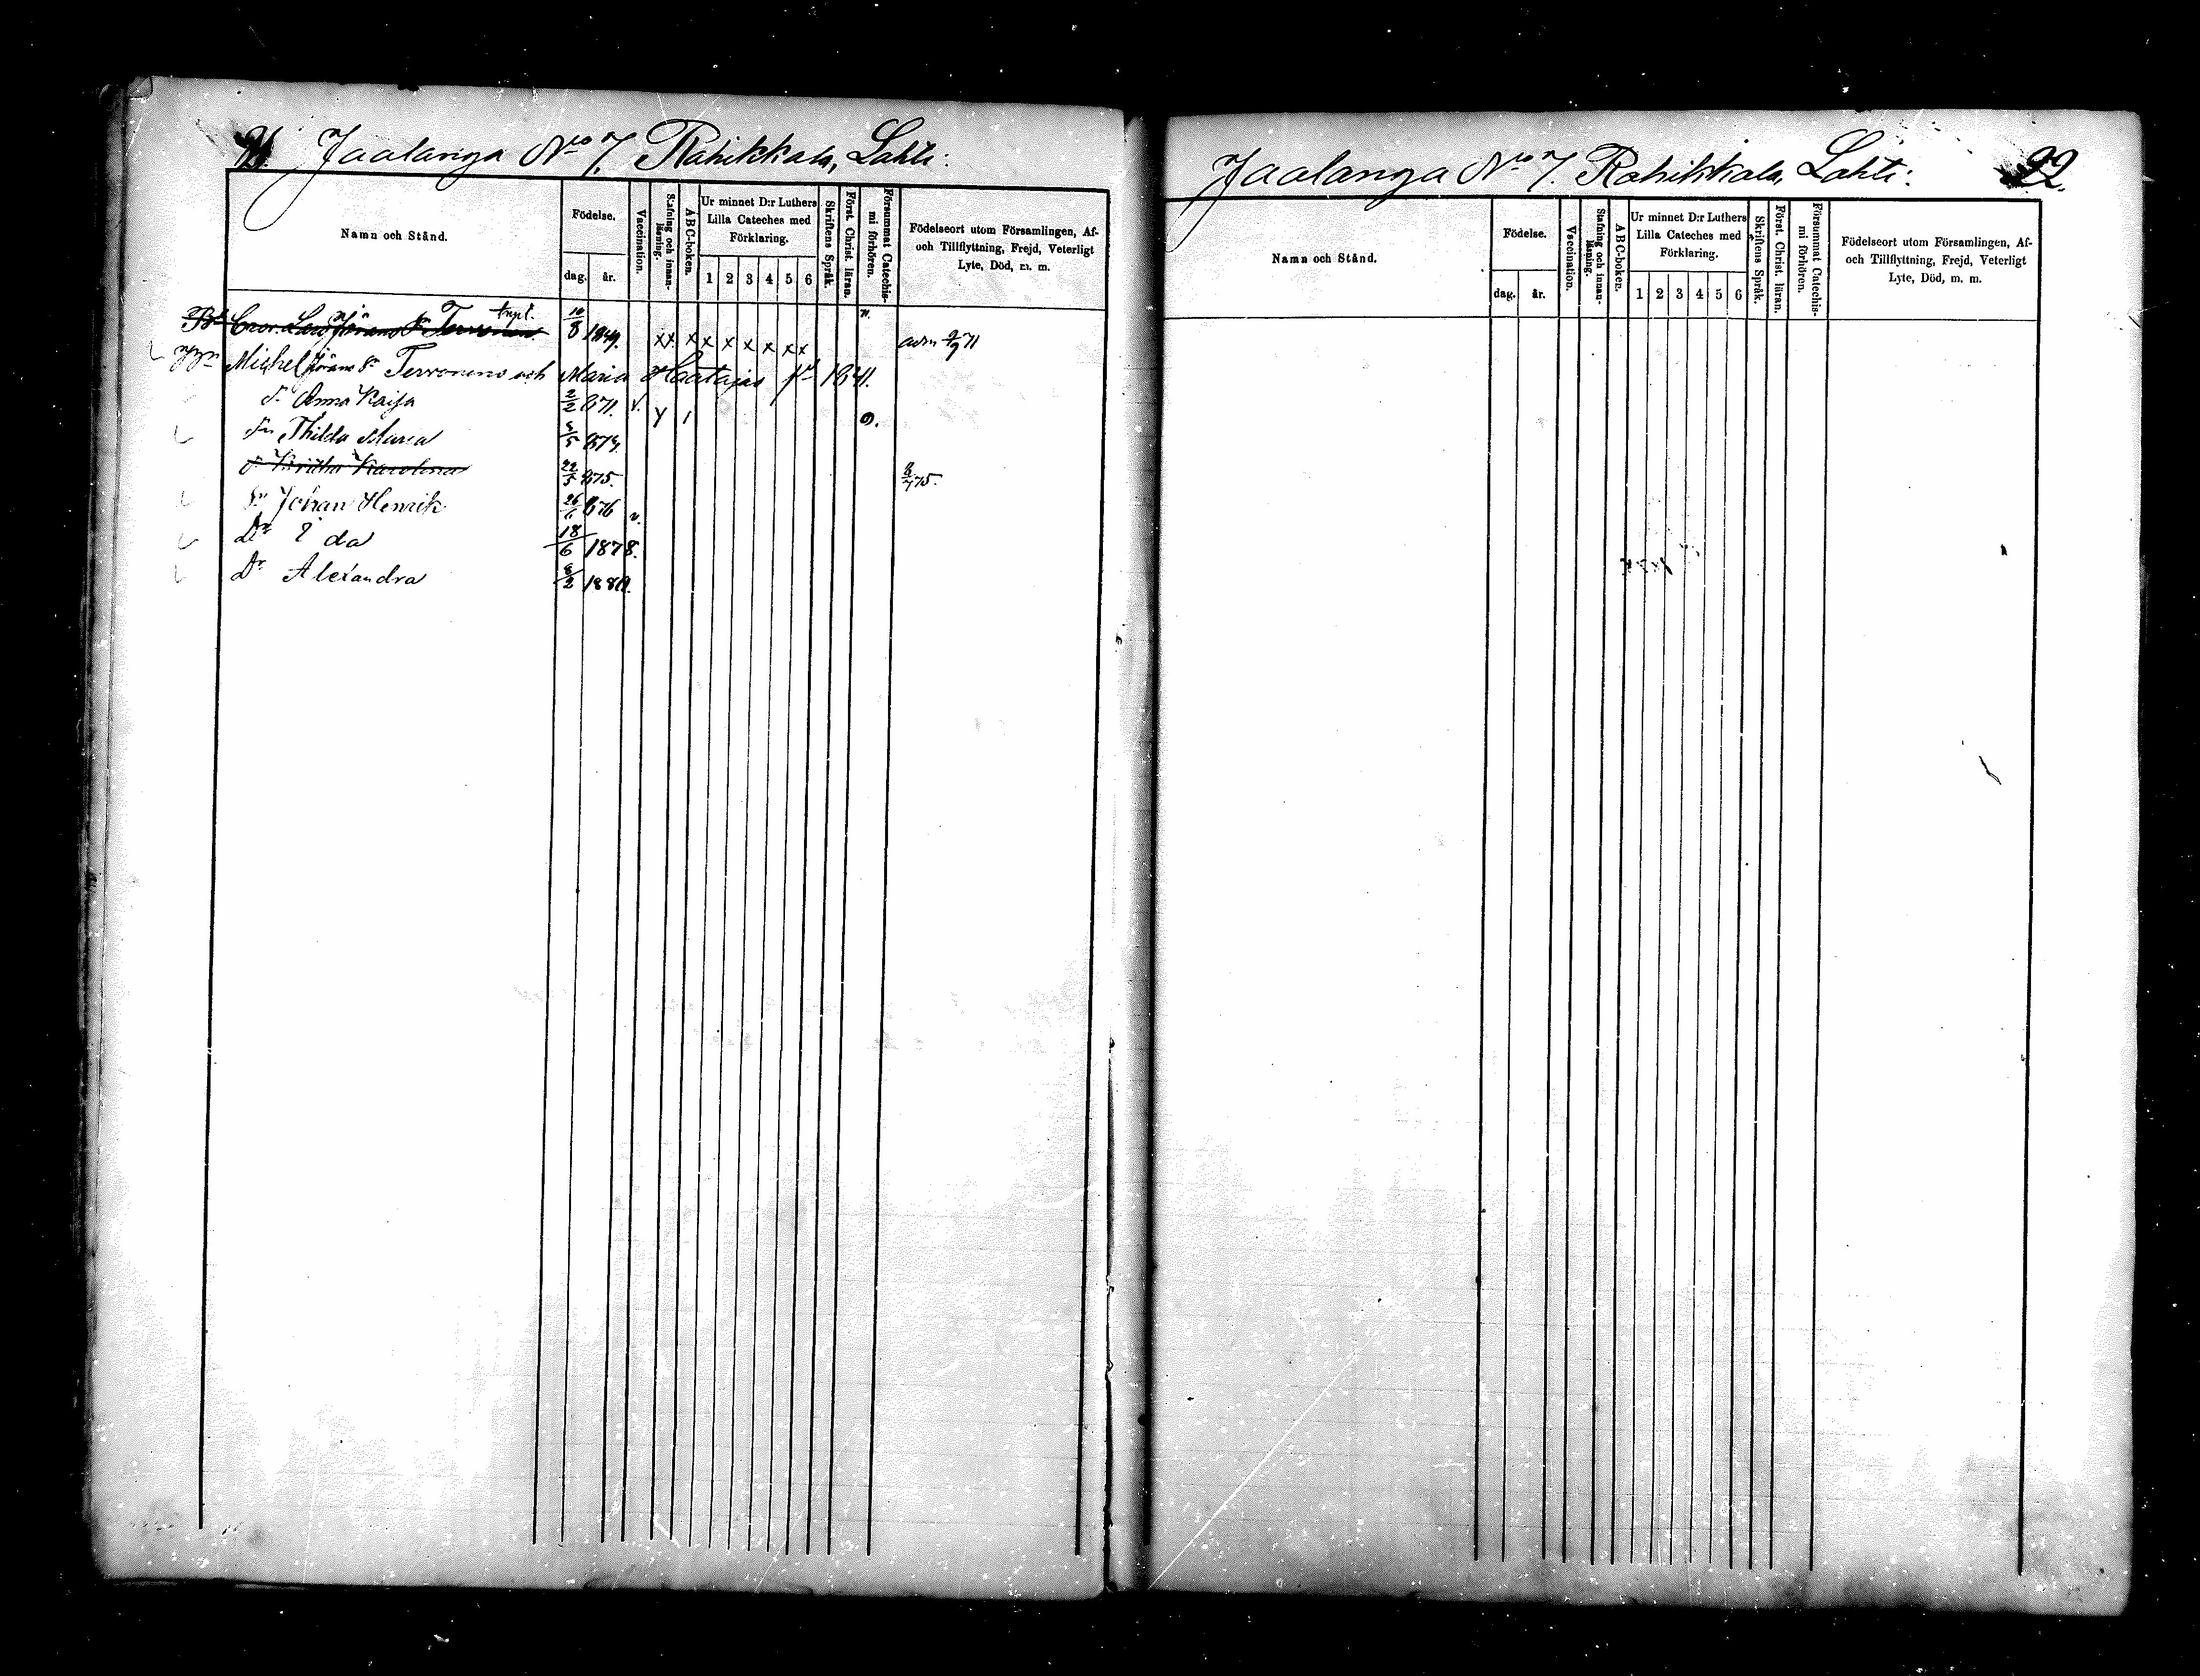 Jaalanga No 7. Rahikkala, Lahti.
Namn och Stånd.
Födelse.
dag. år.
Vaccination.
Stafning och innan-läsning.
ABC-boken.
Ur minnet D:r Luthers
Lilla Cateches med
Förklaring.
1 2 3 4 5 6
Skriftens Språk.
Först. Christ. läran.
Försummat Catechis-
mi förhören.
Födelseort utom Församlingen, Af-
och Tillflyttning, Frejd, Veterligt
Lyte, Död, m. m.
inpl.
Terronen 10/8 1849. xx x x x x x x x 71
Michel Jörans Sn Terronens och Maria Haatajas 1841.
Anna Kaisa 2/2 871. v.
Thilda Maria
Karolina 22/5 875. 75.
Sn Johan Henrik 26/6 876 v.
Dr Ida 18/6 1878.
Dr Alexandra 8/2 188
Jaalanga No 7. Rahikkala, Lahti. 22.
Namn och Stånd.
Födelse.
dag. år.
Vaccination.
Stafning och innan-läsning.
ABC-boken.
Ur minnet D:r Luthers
Lilla Cateches med
Förklaring.
1 2 3 4 5 6
Skriftens Språk.
Först. Christ. läran.
Försummat Catechis-
mi förhören.
Födelseort utom Församlingen, Af-
och Tillflyttning, Frejd, Veterligt
Lyte, Död, m. m.